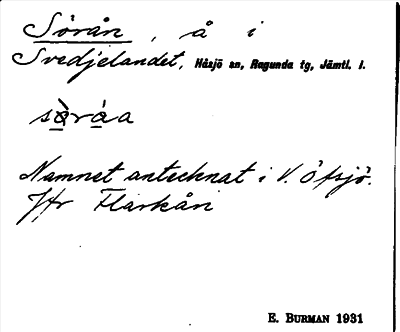 Sörån, å i
Svedjelandet, Håsjö sn, Ragunda tg, Jämtl. l.
sòráa
Namnet antecknat i V. Öfsjö.
Jfr Flarkån
E. BURMAN 1931